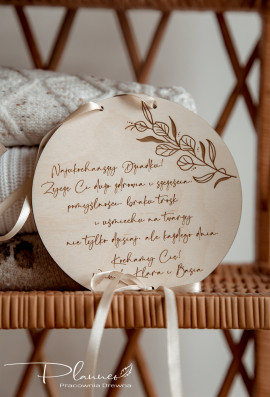 Najukochańszy Dziadku!
Życzę Ci dużo zdrowia i szczęścia
pomyślności braku trosk
i uśmiechu na twarzy
nie tylko dzisiaj ale każdego dnia
Kochamy Cię!
Klara i Basia
Planneo
Pracownia Drewna